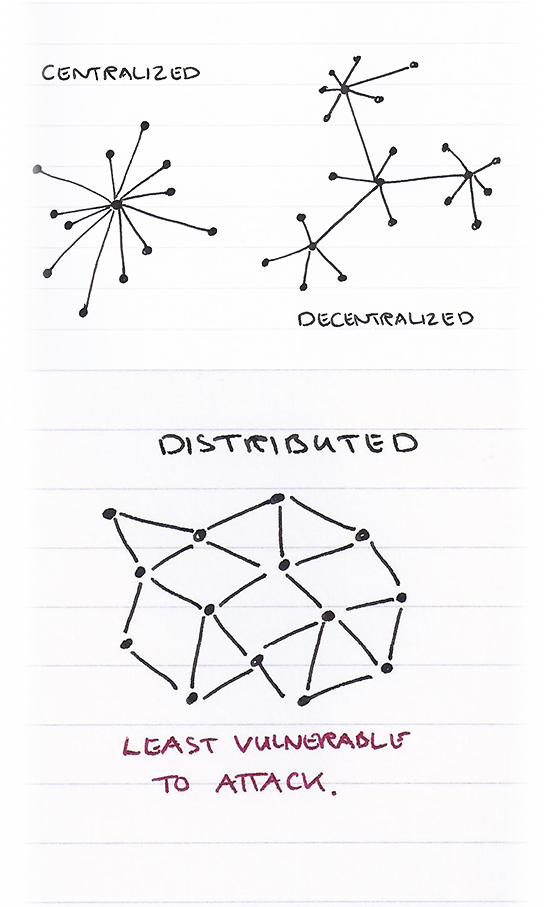 CENTRALIZED
DECENTRALIZED
DISTRIBUTED
LEAST VULNERABLE
TO ATTACK.